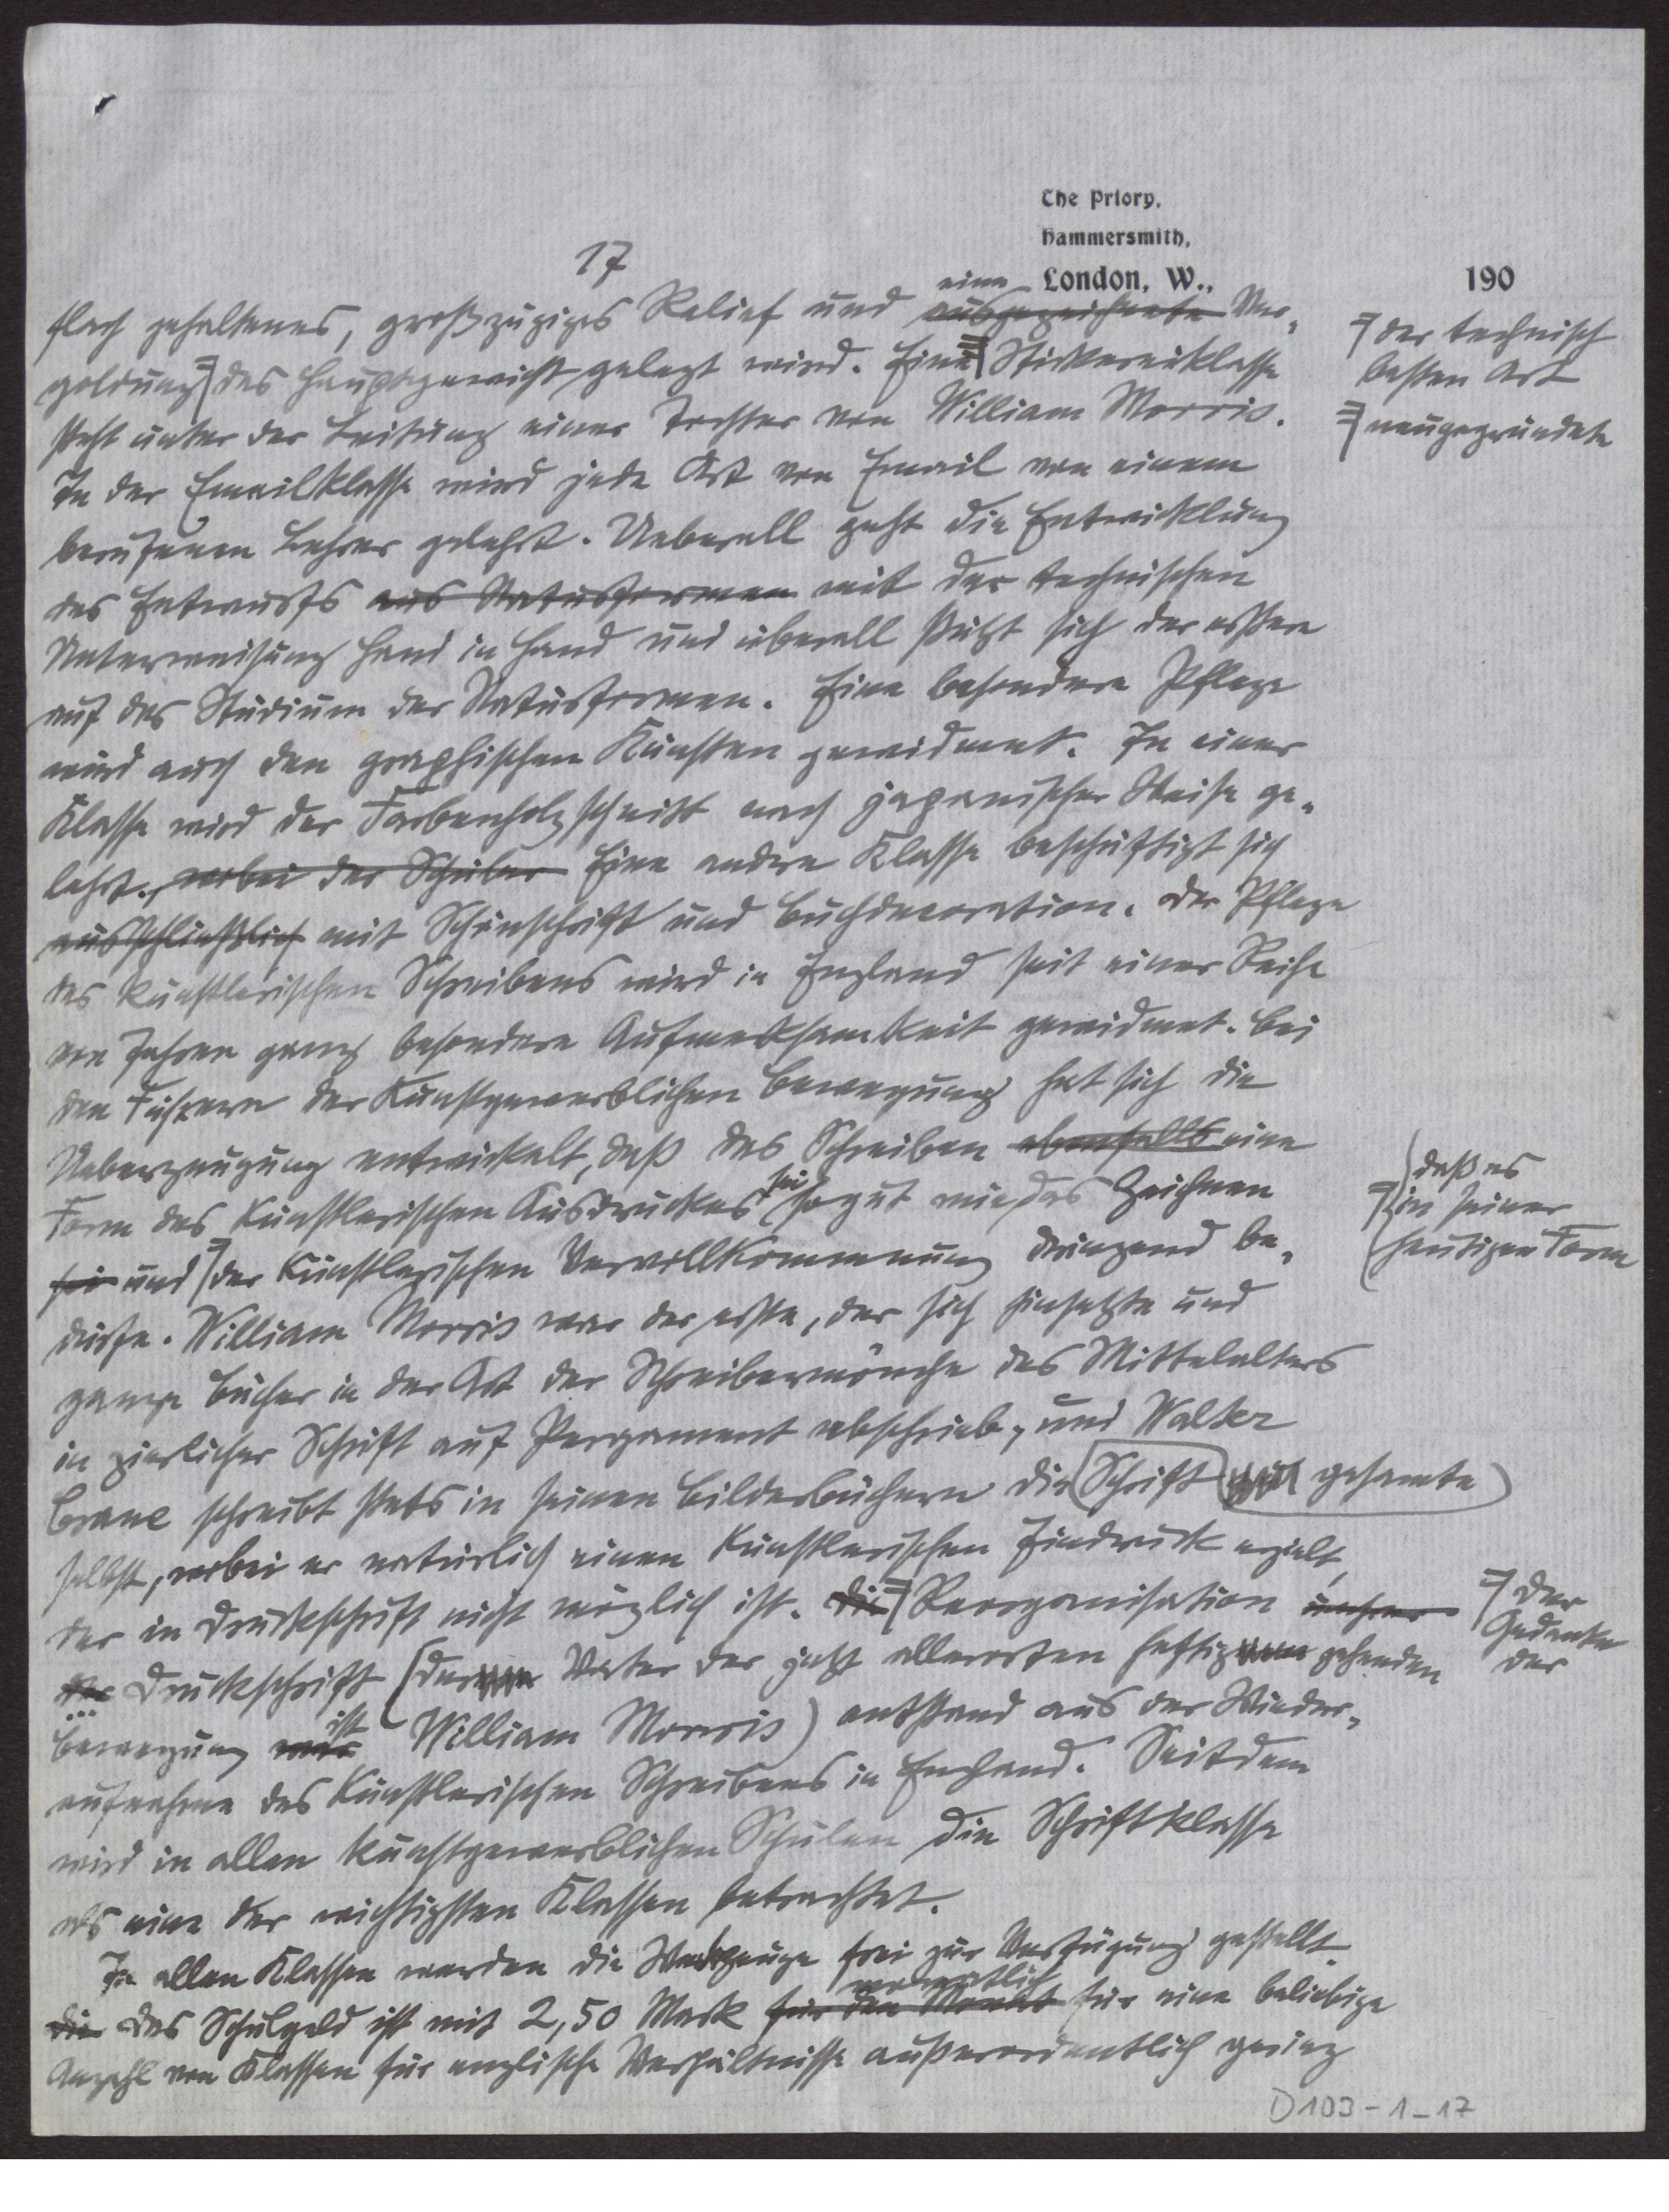 The Priory,
Hammersmith,
London, W., 190
17
flach gehaltenes, großzügiges Relief und ~~ausgezeichnete~~ eine Ver-
goldung das Hauptgewicht gelegt wird. Eine Stickereiklasse
⌉ der technisch
besten Art
⌉ neugegründete
steht unter der Leitung einer Tochter von William Morris.
In der Emailklasse wird jede Art von Email von einem
berufenen Lehrer gelehrt. Ueberall geht die Entwicklung
des Entwurfs ~~aus Naturformen~~ mit der technischen
Unterweisung Hand in Hand und überall stützt sich der erstere
auf das Studium der Naturformen. Eine besondere Pflege
wird auch den graphischen Künsten gewidmet. In einer
Klasse wird der Farbenholzschnitt nach japanischer Weise ge-
lehrt. ~~wobei der Schüler~~ Eine andere Klasse beschäftigt sich
~~ausschließlich~~ mit Schönschrift und Buchdecoration. Der Pflege
des künstlerischen Schreibens wird in England seit einer Reihe
von Jahren ganz besondere Aufmerksamkeit gewidmet. Bei
den Führern der kunstgewerblichen Bewegung hat sich die
Ueberzeugung entwickelt, daß das Schreiben ~~ebenfalls~~ eine
Form des künstlerischen Ausdruckes sei so gut wie das Zeichnen
~~sei~~ und ⌉ der künstlerischen Vervollkommnung dringend be-
⌉ daß es
in seiner
heutigen Form
dürfe. William Morris war der erste, der sich hinsetzte und
ganze Bücher in der Art der Schreibermönche des Mittelalters
in zierlicher Schrift auf Pergament abschrieb, und Walter
Crane schreibt stets in seinen Bilderbüchern die Schrift gesamte
selbst, wobei er natürlich einen künstlerischen Eindruck erzielt,
der in Druckschrift nicht möglich ist. ~~Die~~ ⌉ Reorganisation ~~unserer~~
⌉ Der
Gedanke
der
der Druckschrift (der Vater der jetzt allerorten heftig gehenden
Bewegung ~~war~~ ist William Morris) entstand aus der Wieder-
aufnahme des künstlerischen Schreibens in England. Seitdem
wird in allen kunstgewerblichen Schulen die Schriftklasse
als eine der wichtigsten Klassen betrachtet.
In allen Klassen werden die Werkzeuge frei zur Verfügung gestellt.
~~Die~~ Das Schulgeld ist mit 2,50 Mark ~~für den Monat~~ monatlich für eine beliebige
Anzahl von Klassen für englische Verhältnisse außerordentlich gering
D103-1-17